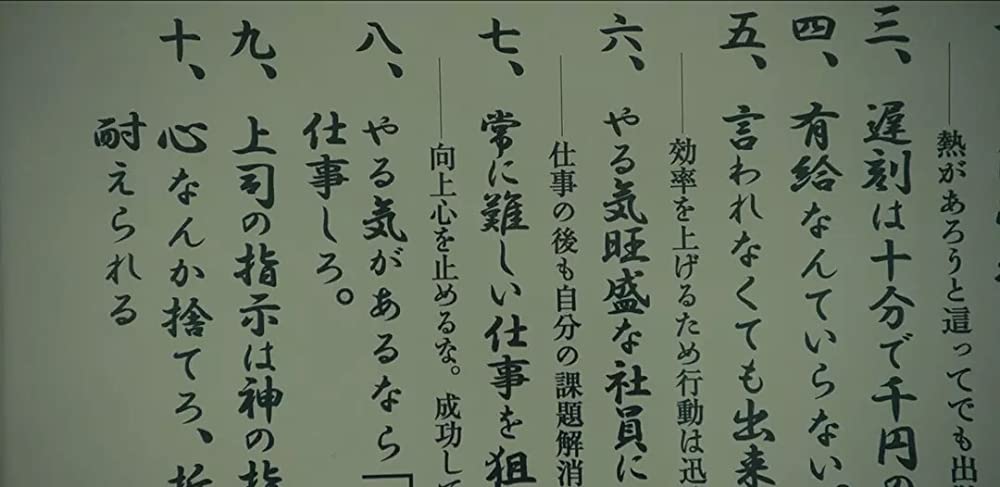 熱があろうと這ってでも出
三、遅刻は十分で千円の
四、有給なんていらない。
五、言われなくても出来
効率を上げるため行動は迅
六、やる気旺盛な社員に
仕事の後も自分の課題解消
七、常に難しい仕事を狙
向上心を止めるな。成功し
八、やる気があるなら「
仕事しろ。
九、上司の指示は神の指
十、心なんか捨てろ、折
耐えられる